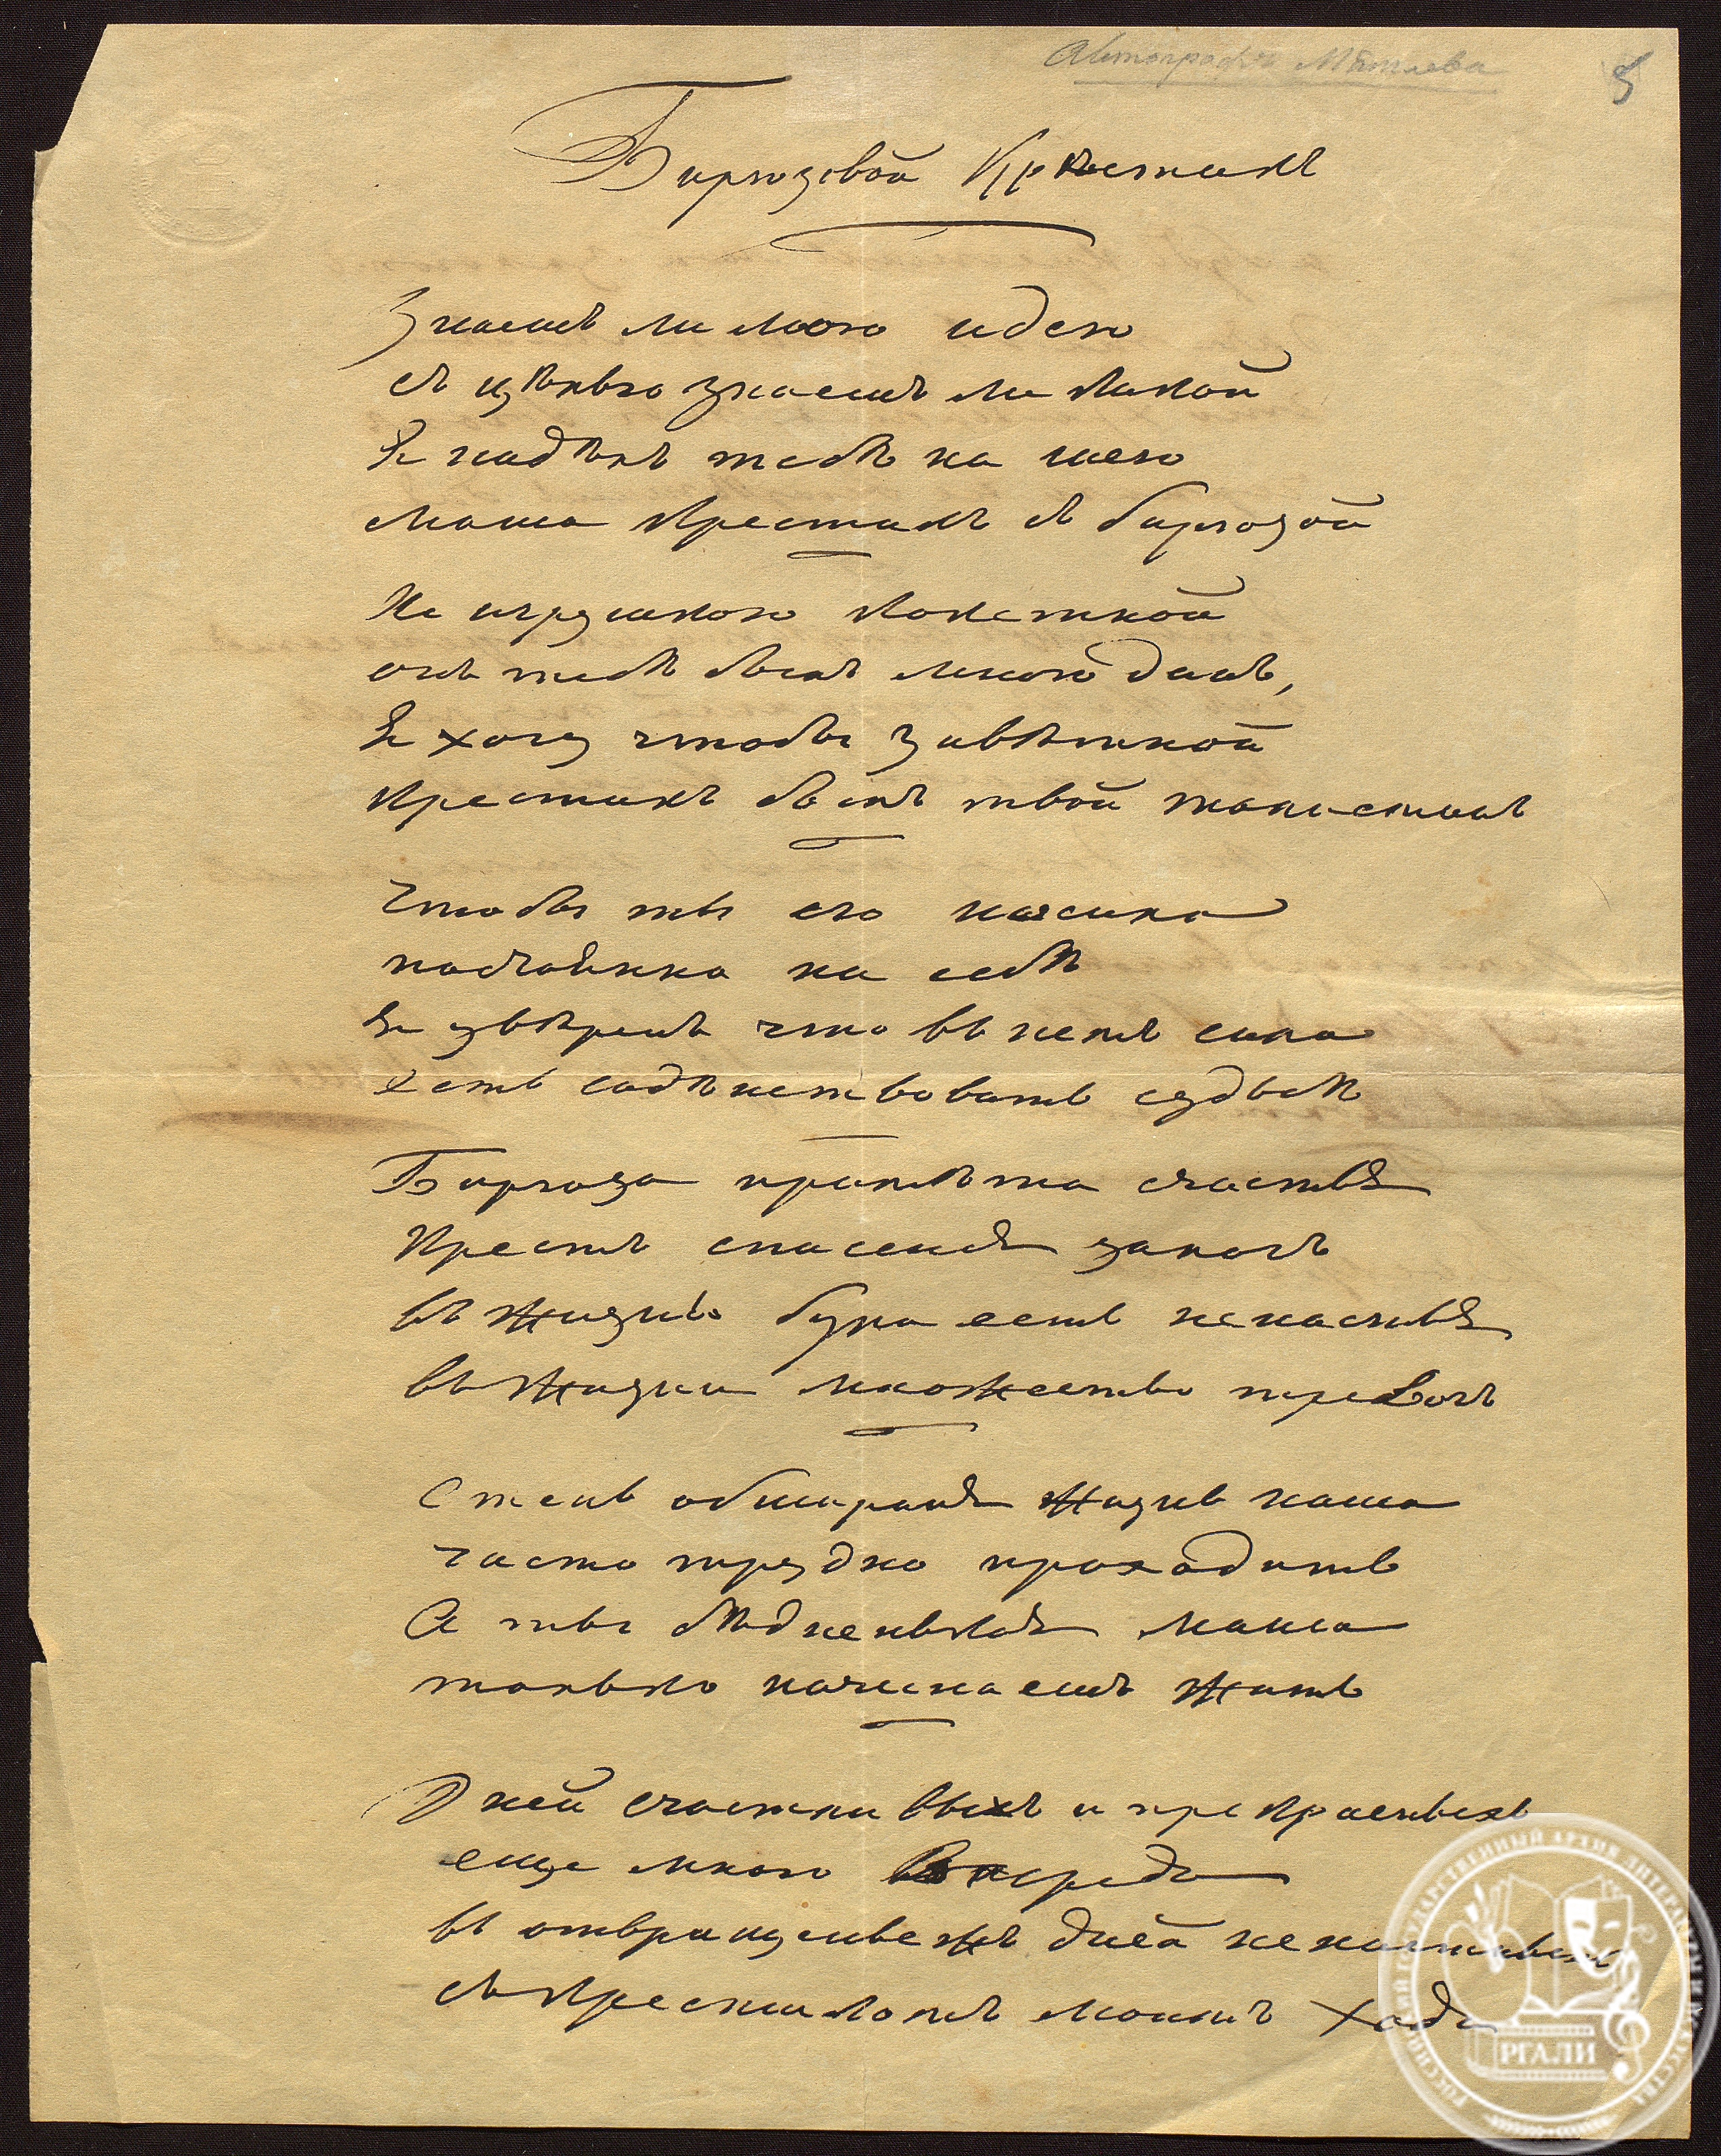 Автографъ Мятлева
5
Бирюзовой Крѣстикъ
Знаешъ ли мою идею
съ цѣлью знаешъ ли какой
Я надѣлъ тебѣ на шею
Маша крестикъ съ бирюзой
Не игрушкою кокеткой
онъ тебѣ былъ мною данъ,
Я хочу чтобы завѣткой
крестикъ былъ твой талисманъ
Чтобы ты его носила
постоянно на себѣ
Я увѣренъ что въ немъ сила
Есть содѣйствовать судьбѣ
Бирюза примѣта счастья
Крестъ спасенья залогъ
въ жизни буря есть ненастья
въ жизни множество тревогъ
Степь обширная жизнь наша
часто трудно проходить
А ты бѣдненькая Маша
только начинаешъ жить
Дней счастливыхъ и прекрасныхъ
еще много впереди
въ отвращенье жъ дней ненастныхъ
съ крестикомъ моимъ ходи
РОССИЙСКИЙ ГОСУДАРСТВЕННЫЙ АРХИВ ЛИТЕРАТУРЫ И ИСКУССТВА
РГАЛИ